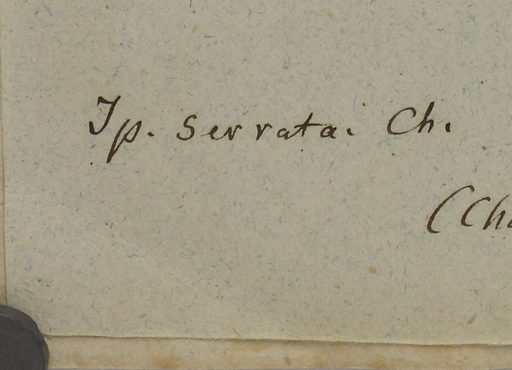 Ip. serrata. Ch.
(Cha